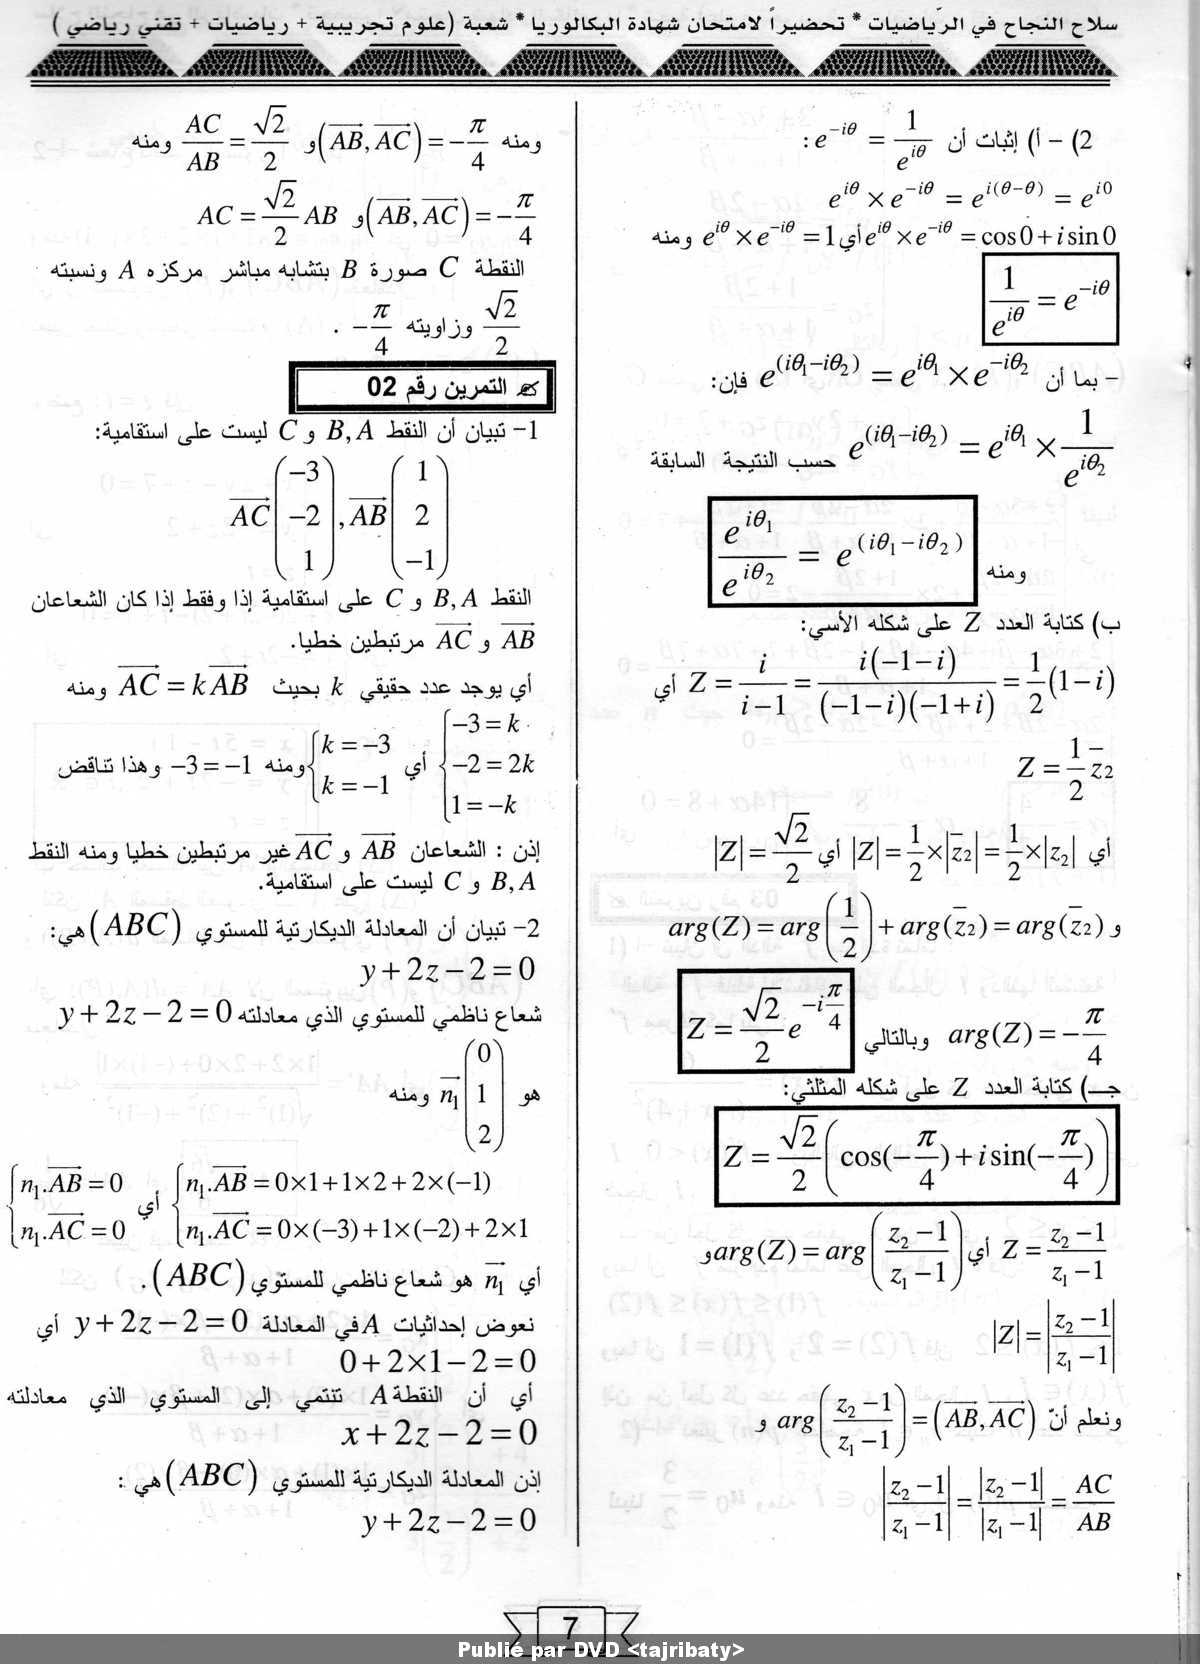 سلاح النجاح في الرّياضيات * تحضيراً لامتحان شهادة البكالوريا * شعبة (علوم تجريبية + رياضيات + تقني رياضي )
2) - أ) إثبات أن e^{-iθ} = 1/e^{iθ} :
e^{iθ} × e^{-iθ} = e^{i(θ-θ)} = e^{i0}
e^{iθ} × e^{-iθ} = cos0 + i sin0 أي e^{iθ} × e^{-iθ} = 1 ومنه
1/e^{iθ} = e^{-iθ}
- بما أن e^{(iθ₁-iθ₂)} = e^{iθ₁} × e^{-iθ₂} فإن:
e^{(iθ₁-iθ₂)} = e^{iθ₁} × 1/e^{iθ₂} حسب النتيجة السابقة
ومنه e^{iθ₁}/e^{iθ₂} = e^{(iθ₁-iθ₂)}
ب) كتابة العدد Z على شكله الأسي:
Z = i/(i-1) = i(-1-i)/((-1-i)(-1+i)) = 1/2 (1-i) أي
Z = 1/2 z̄₂
أي |Z| = 1/2 × |z̄₂| = 1/2 × |z₂| أي |Z| = √2/2
و arg(Z) = arg(1/2) + arg(z̄₂) = arg(z̄₂)
arg(Z) = -π/4 وبالتالي Z = √2/2 e^{-iπ/4}
جـ) كتابة العدد Z على شكله المثلثي:
Z = √2/2 (cos(-π/4) + i sin(-π/4))
Z = (z₂-1)/(z₁-1) أي arg(Z) = arg((z₂-1)/(z₁-1)) و
|Z| = |(z₂-1)/(z₁-1)|
ونعلم أنّ arg((z₂-1)/(z₁-1)) = (AB, AC) و
|(z₂-1)/(z₁-1)| = |z₂-1|/|z₁-1| = AC/AB
ومنه (AB, AC) = -π/4 و AC/AB = √2/2 ومنه
(AB, AC) = -π/4 و AC = √2/2 AB
النقطة C صورة B بتشابه مباشر مركزه A ونسبته
√2/2 وزاويته -π/4 .
التمرين رقم 02
1- تبيان أن النقط B, A و C ليست على استقامية:
AC(-3 ; -2 ; 1) , AB(1 ; 2 ; -1)
النقط B, A و C على استقامية إذا وفقط إذا كان الشعاعان
AB و AC مرتبطين خطيا.
أي يوجد عدد حقيقي k بحيث AC = k AB ومنه
{-3 = k ; -2 = 2k ; 1 = -k أي {k = -3 ; k = -1 ومنه -3 = -1 وهذا تناقض
إذن : الشعاعان AB و AC غير مرتبطين خطيا ومنه النقط
B, A و C ليست على استقامية.
2- تبيان أن المعادلة الديكارتية للمستوي (ABC) هي:
y + 2z - 2 = 0
شعاع ناظمي للمستوي الذي معادلته y + 2z - 2 = 0
هو n₁(0 ; 1 ; 2) ومنه
{n₁.AB = 0×1+1×2+2×(-1) ; n₁.AC = 0×(-3)+1×(-2)+2×1 أي {n₁.AB = 0 ; n₁.AC = 0
أي n₁ هو شعاع ناظمي للمستوي (ABC).
نعوض إحداثيات A في المعادلة y + 2z - 2 = 0 أي
0 + 2×1 - 2 = 0
أي أن النقطة A تنتمي إلى المستوي الذي معادلته
x + 2z - 2 = 0
إذن المعادلة الديكارتية للمستوي (ABC) هي :
y + 2z - 2 = 0
7
Publié par DVD <tajribaty>